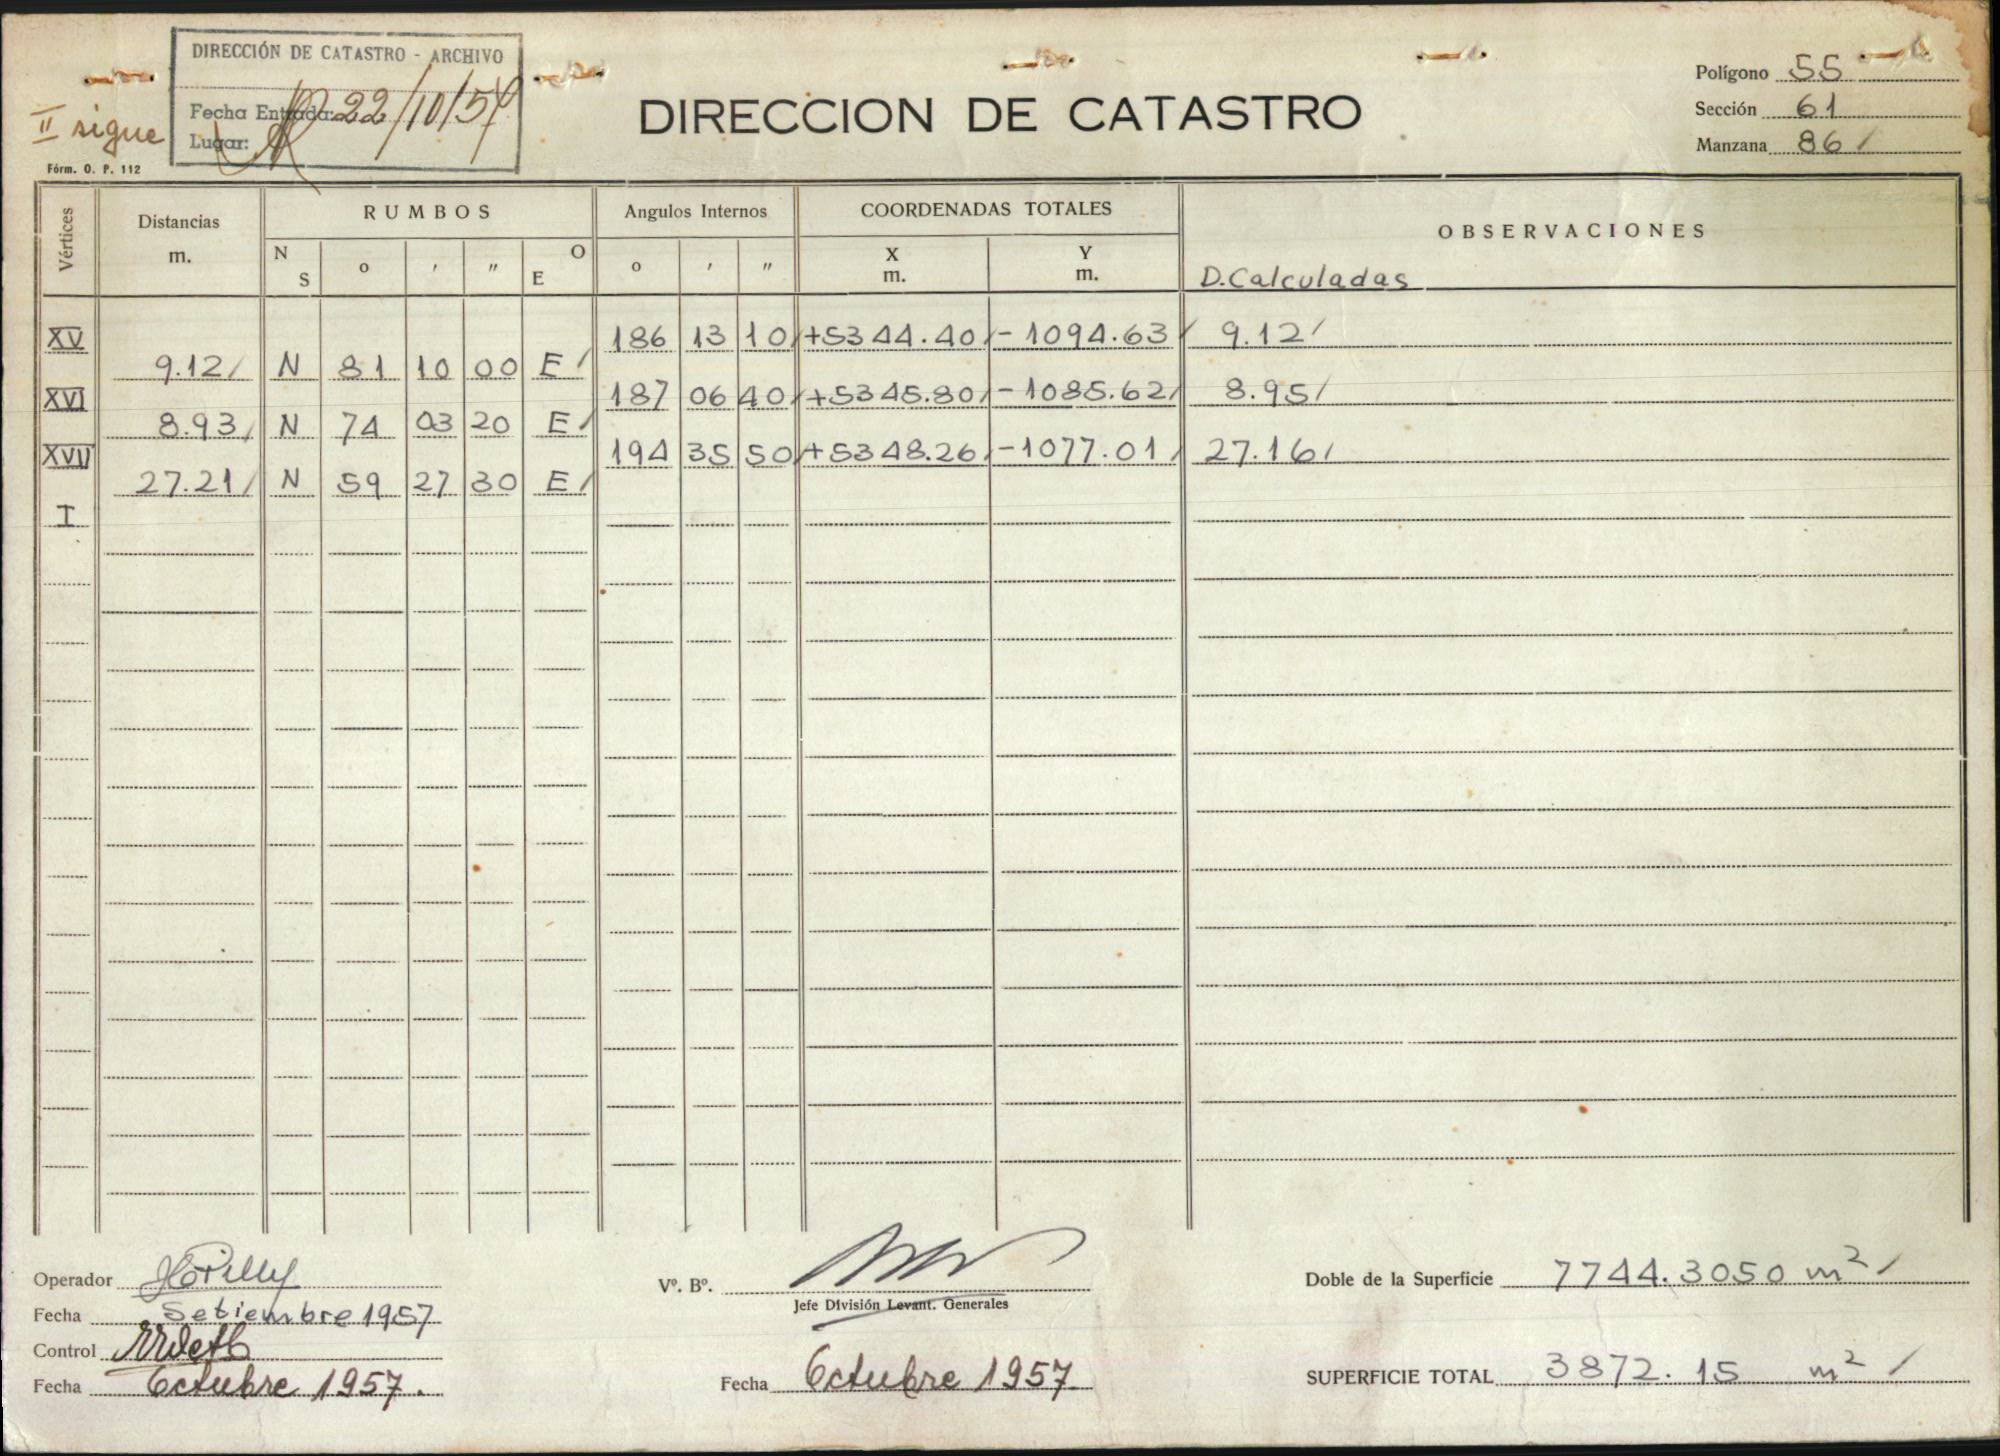 DIRECCIÓN DE CATASTRO - ARCHIVO
Fecha Entrada: 22/10/57
Lugar:
II sigue
Fórm. O. P. 112
DIRECCION DE CATASTRO
Polígono 55
Sección 61
Manzana 86 /
Vértices Distancias m. RUMBOS Angulos Internos COORDENADAS TOTALES OBSERVACIONES
N S o ′ ″ O E o ′ ″ X m. Y m. D. Calculadas
XV 186 13 10/ +5344.40/ -1094.63/ 9.12/
9.12/ N 81 10 00 E/
XVI 187 06 40/ +5345.80/ -1085.62/ 8.95/
8.93/ N 74 03 20 E/
XVII 194 35 50/ +5348.26/ -1077.01/ 27.16/
27.21/ N 59 27 30 E/
I
Operador
Fecha Setiembre 1957
Control
Fecha Octubre 1957.
Vº. Bº.
Jefe División Levant. Generales
Fecha Octubre 1957
Doble de la Superficie 7744.3050 m2/
SUPERFICIE TOTAL 3872.15 m2 /